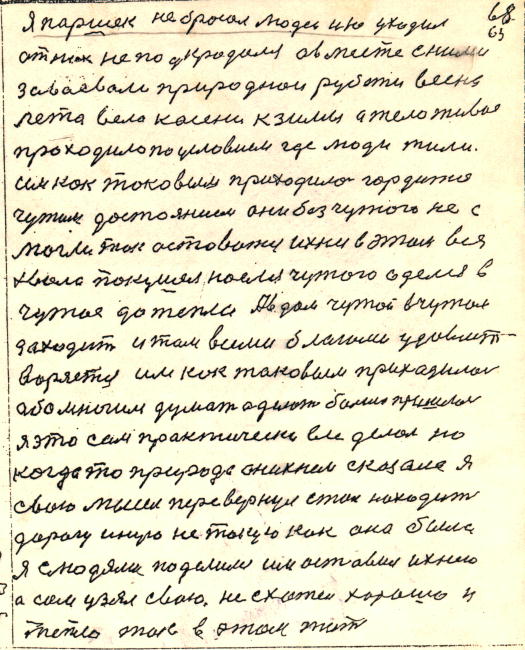 68
Я паршек не бросал людей и не уходил 65
от них не по украдался а вместе с ними
заваевали природнаи рубежи весна
лета вело к осени к зиммы а тело живое
проходило по условием где люди жили.
им как таковым приходилос гордится
чужим достоянием они без чужого не с
могли так оставатся ихня в этам вся
хвала покушал наелся чужого оделся в
чужое до тепла Ав дом чужой в чужом
заходит и там всеми благоми удовлит
варяется им как таковым приходилос
або многим думат а делат было пришлос
я это сам практически все делал но
когда то природа а них мне сказала я
свою мысл перевернул стал находит
дорогу иную не такую как она была
я с людями поделился им оставил ихнею
а сам узял свою. не схотел хорошо и
тепло так в этом жит